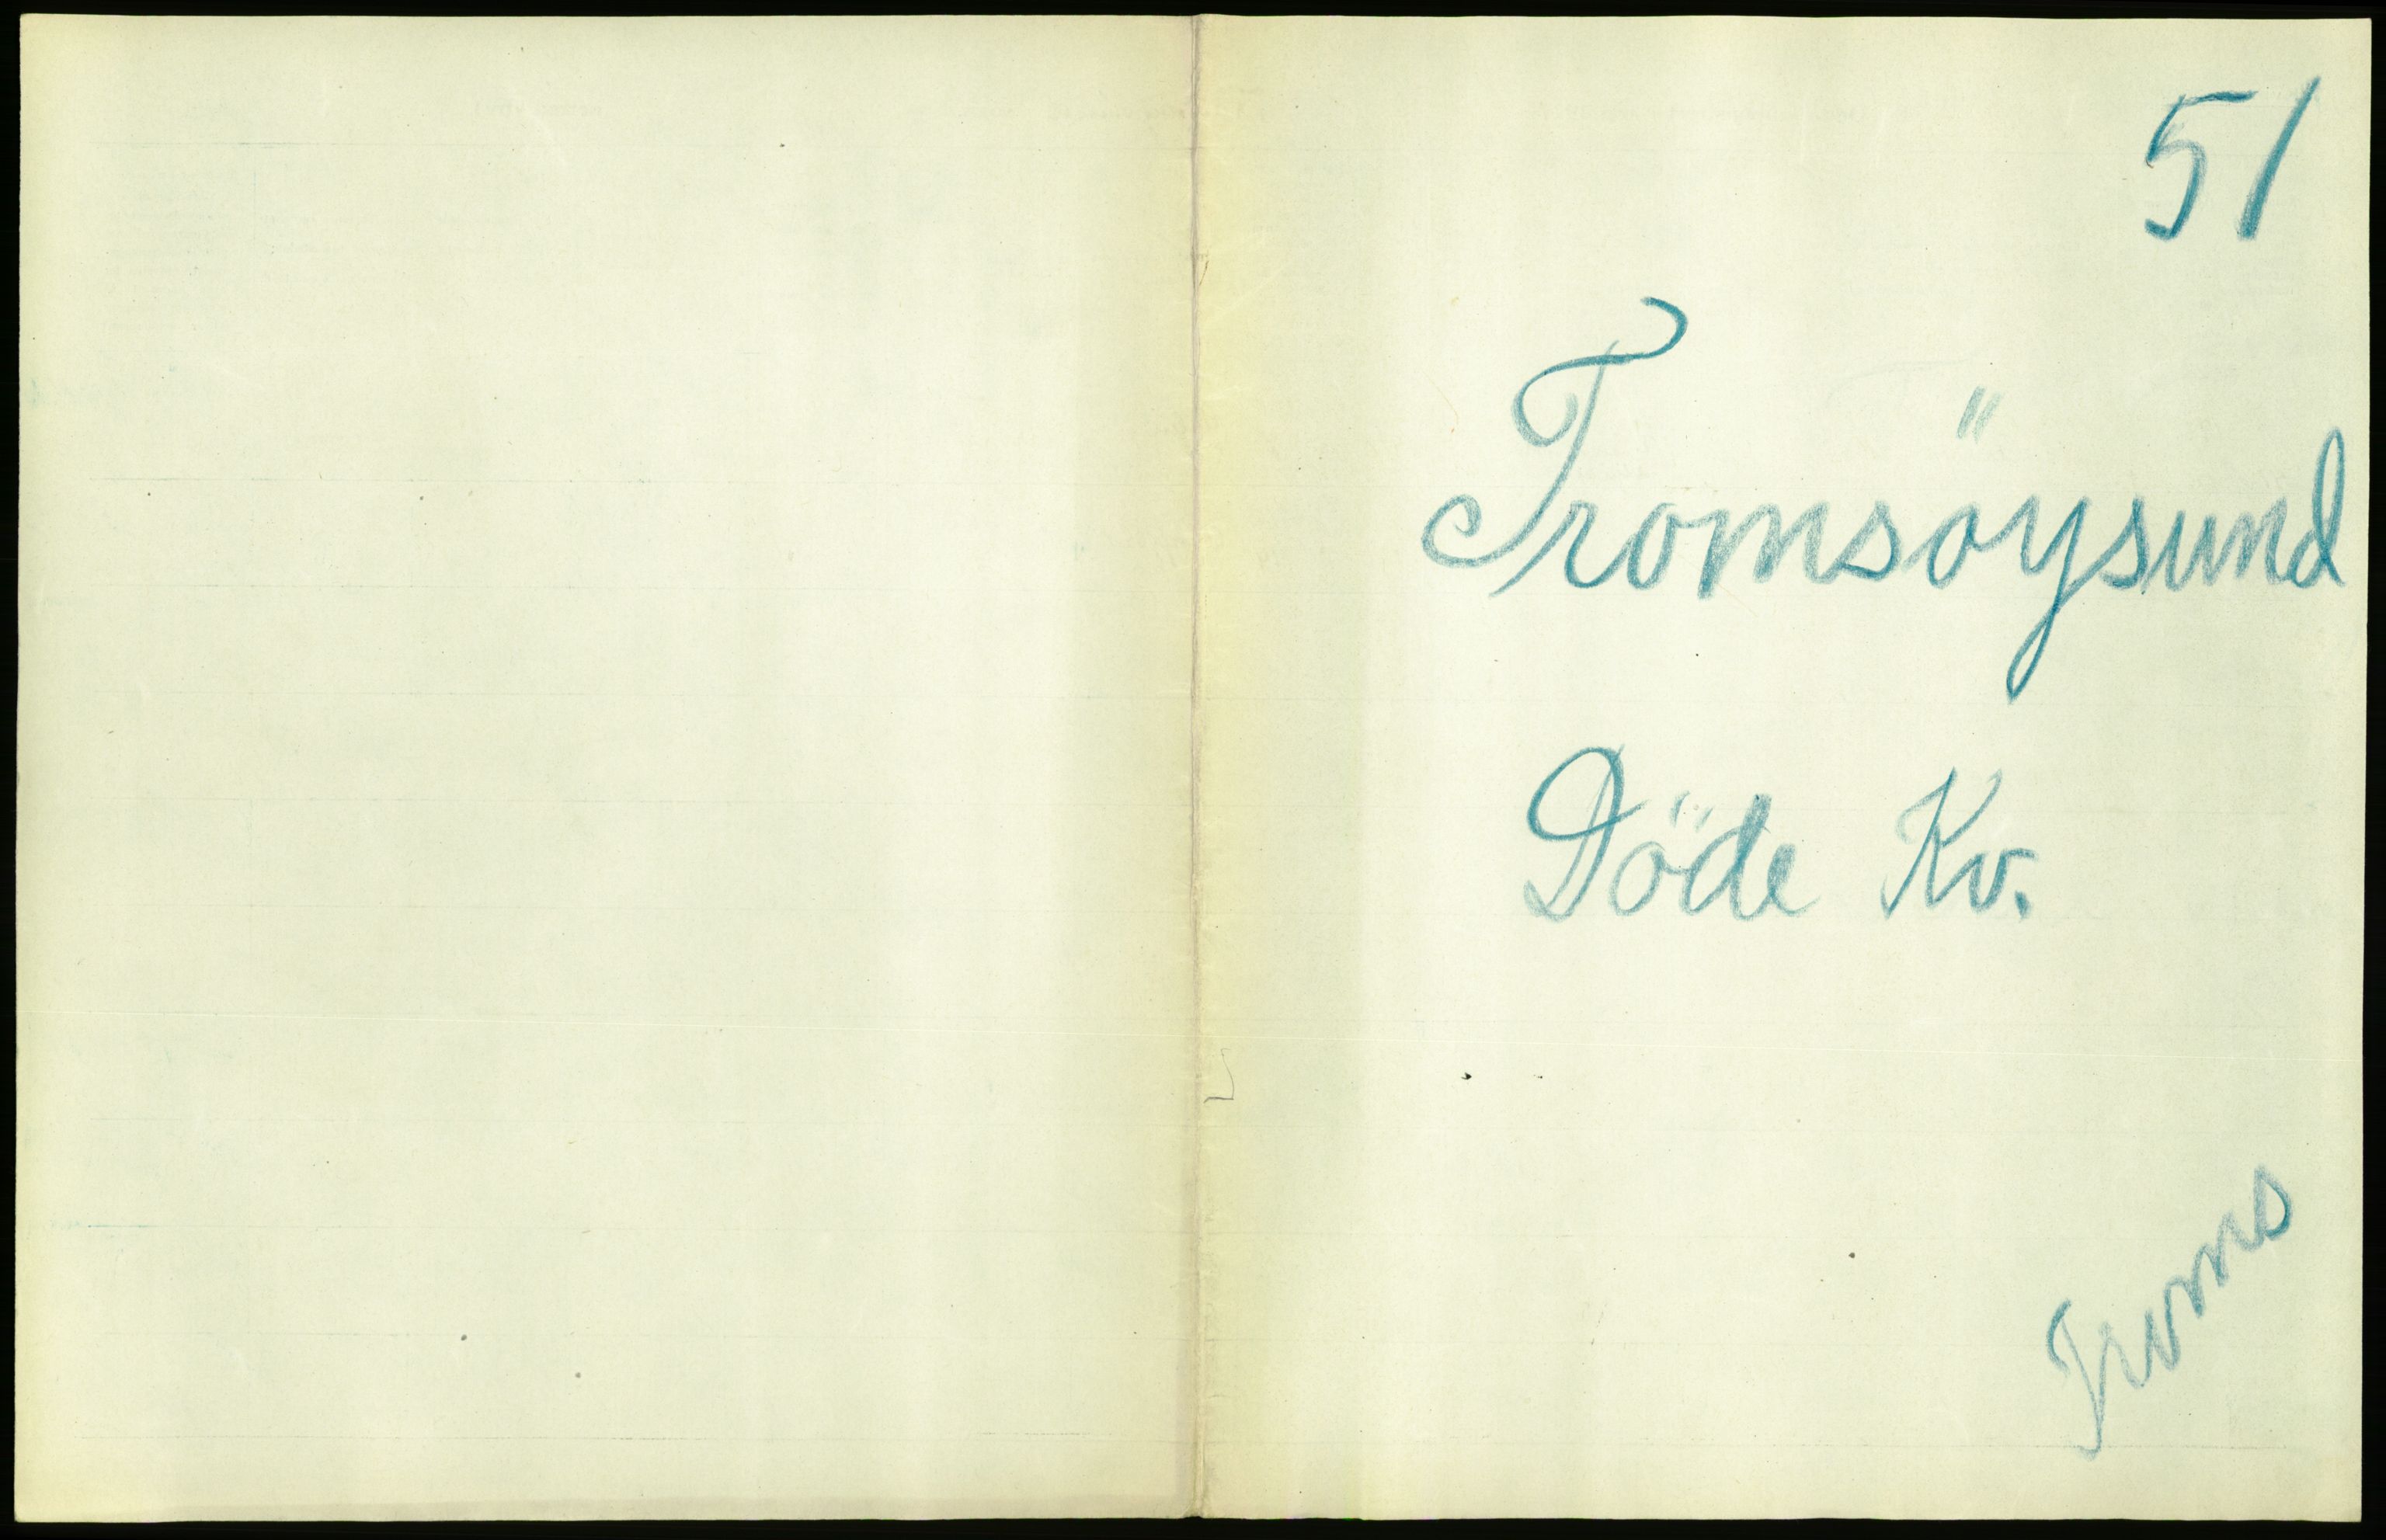 51
Tromsöysund
Döde Kv.
Troms